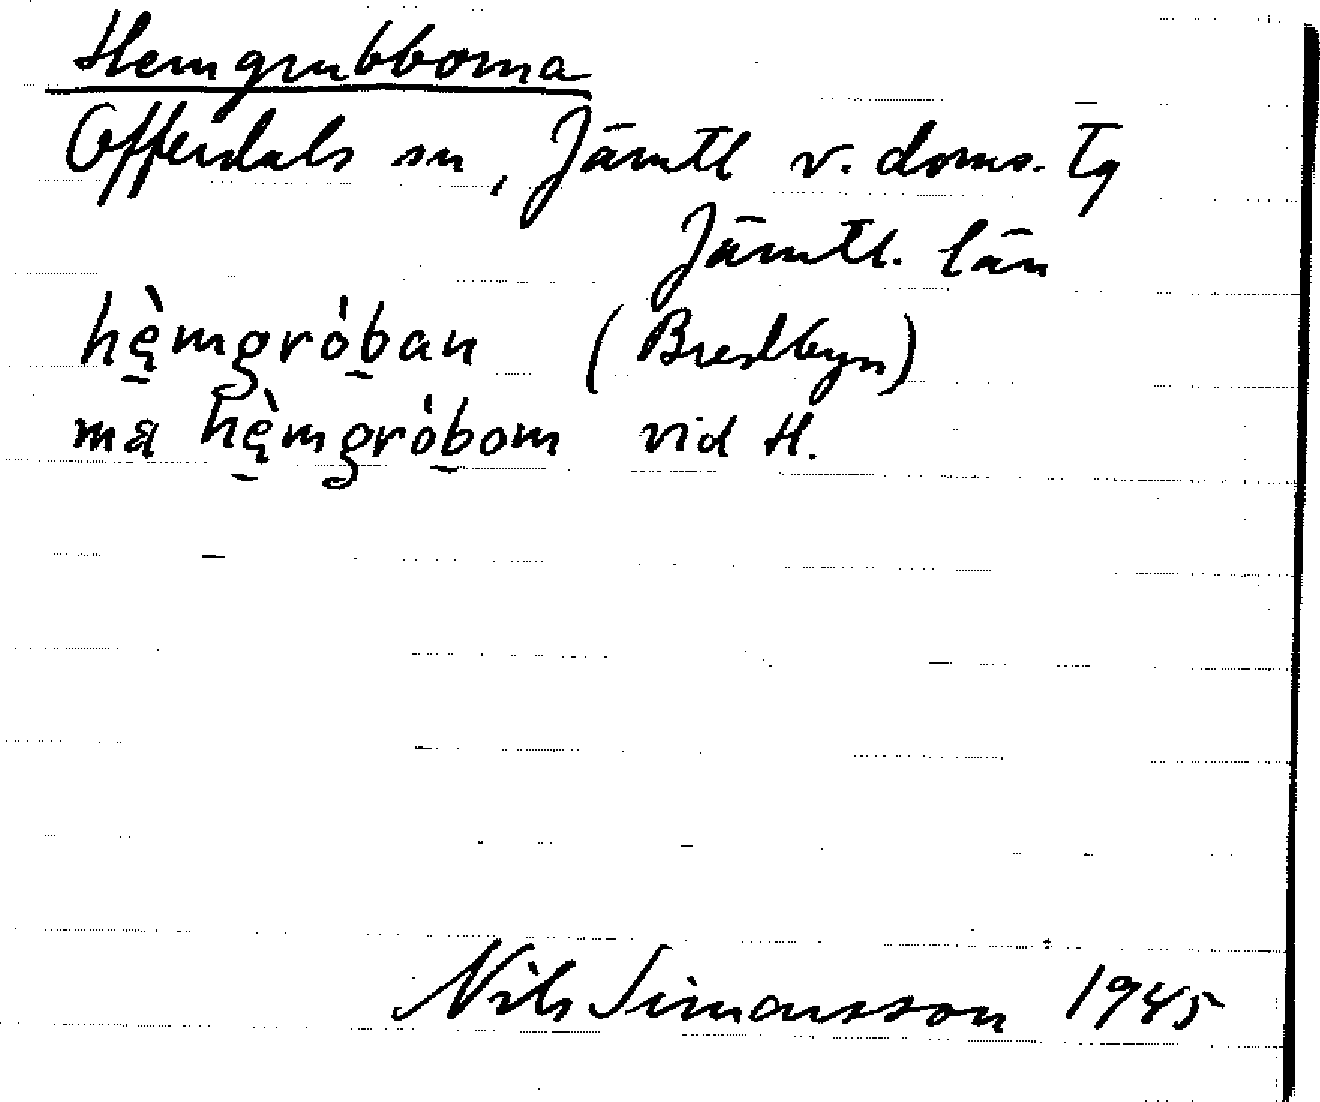 Hemgrubborna
Offerdals sn, Jämtl v. doms. Tg
Jämtl. län
hę̀mgróban (Bredbyn)
ma hę̀mgróbom vid H.
Nils Simonsson 1945